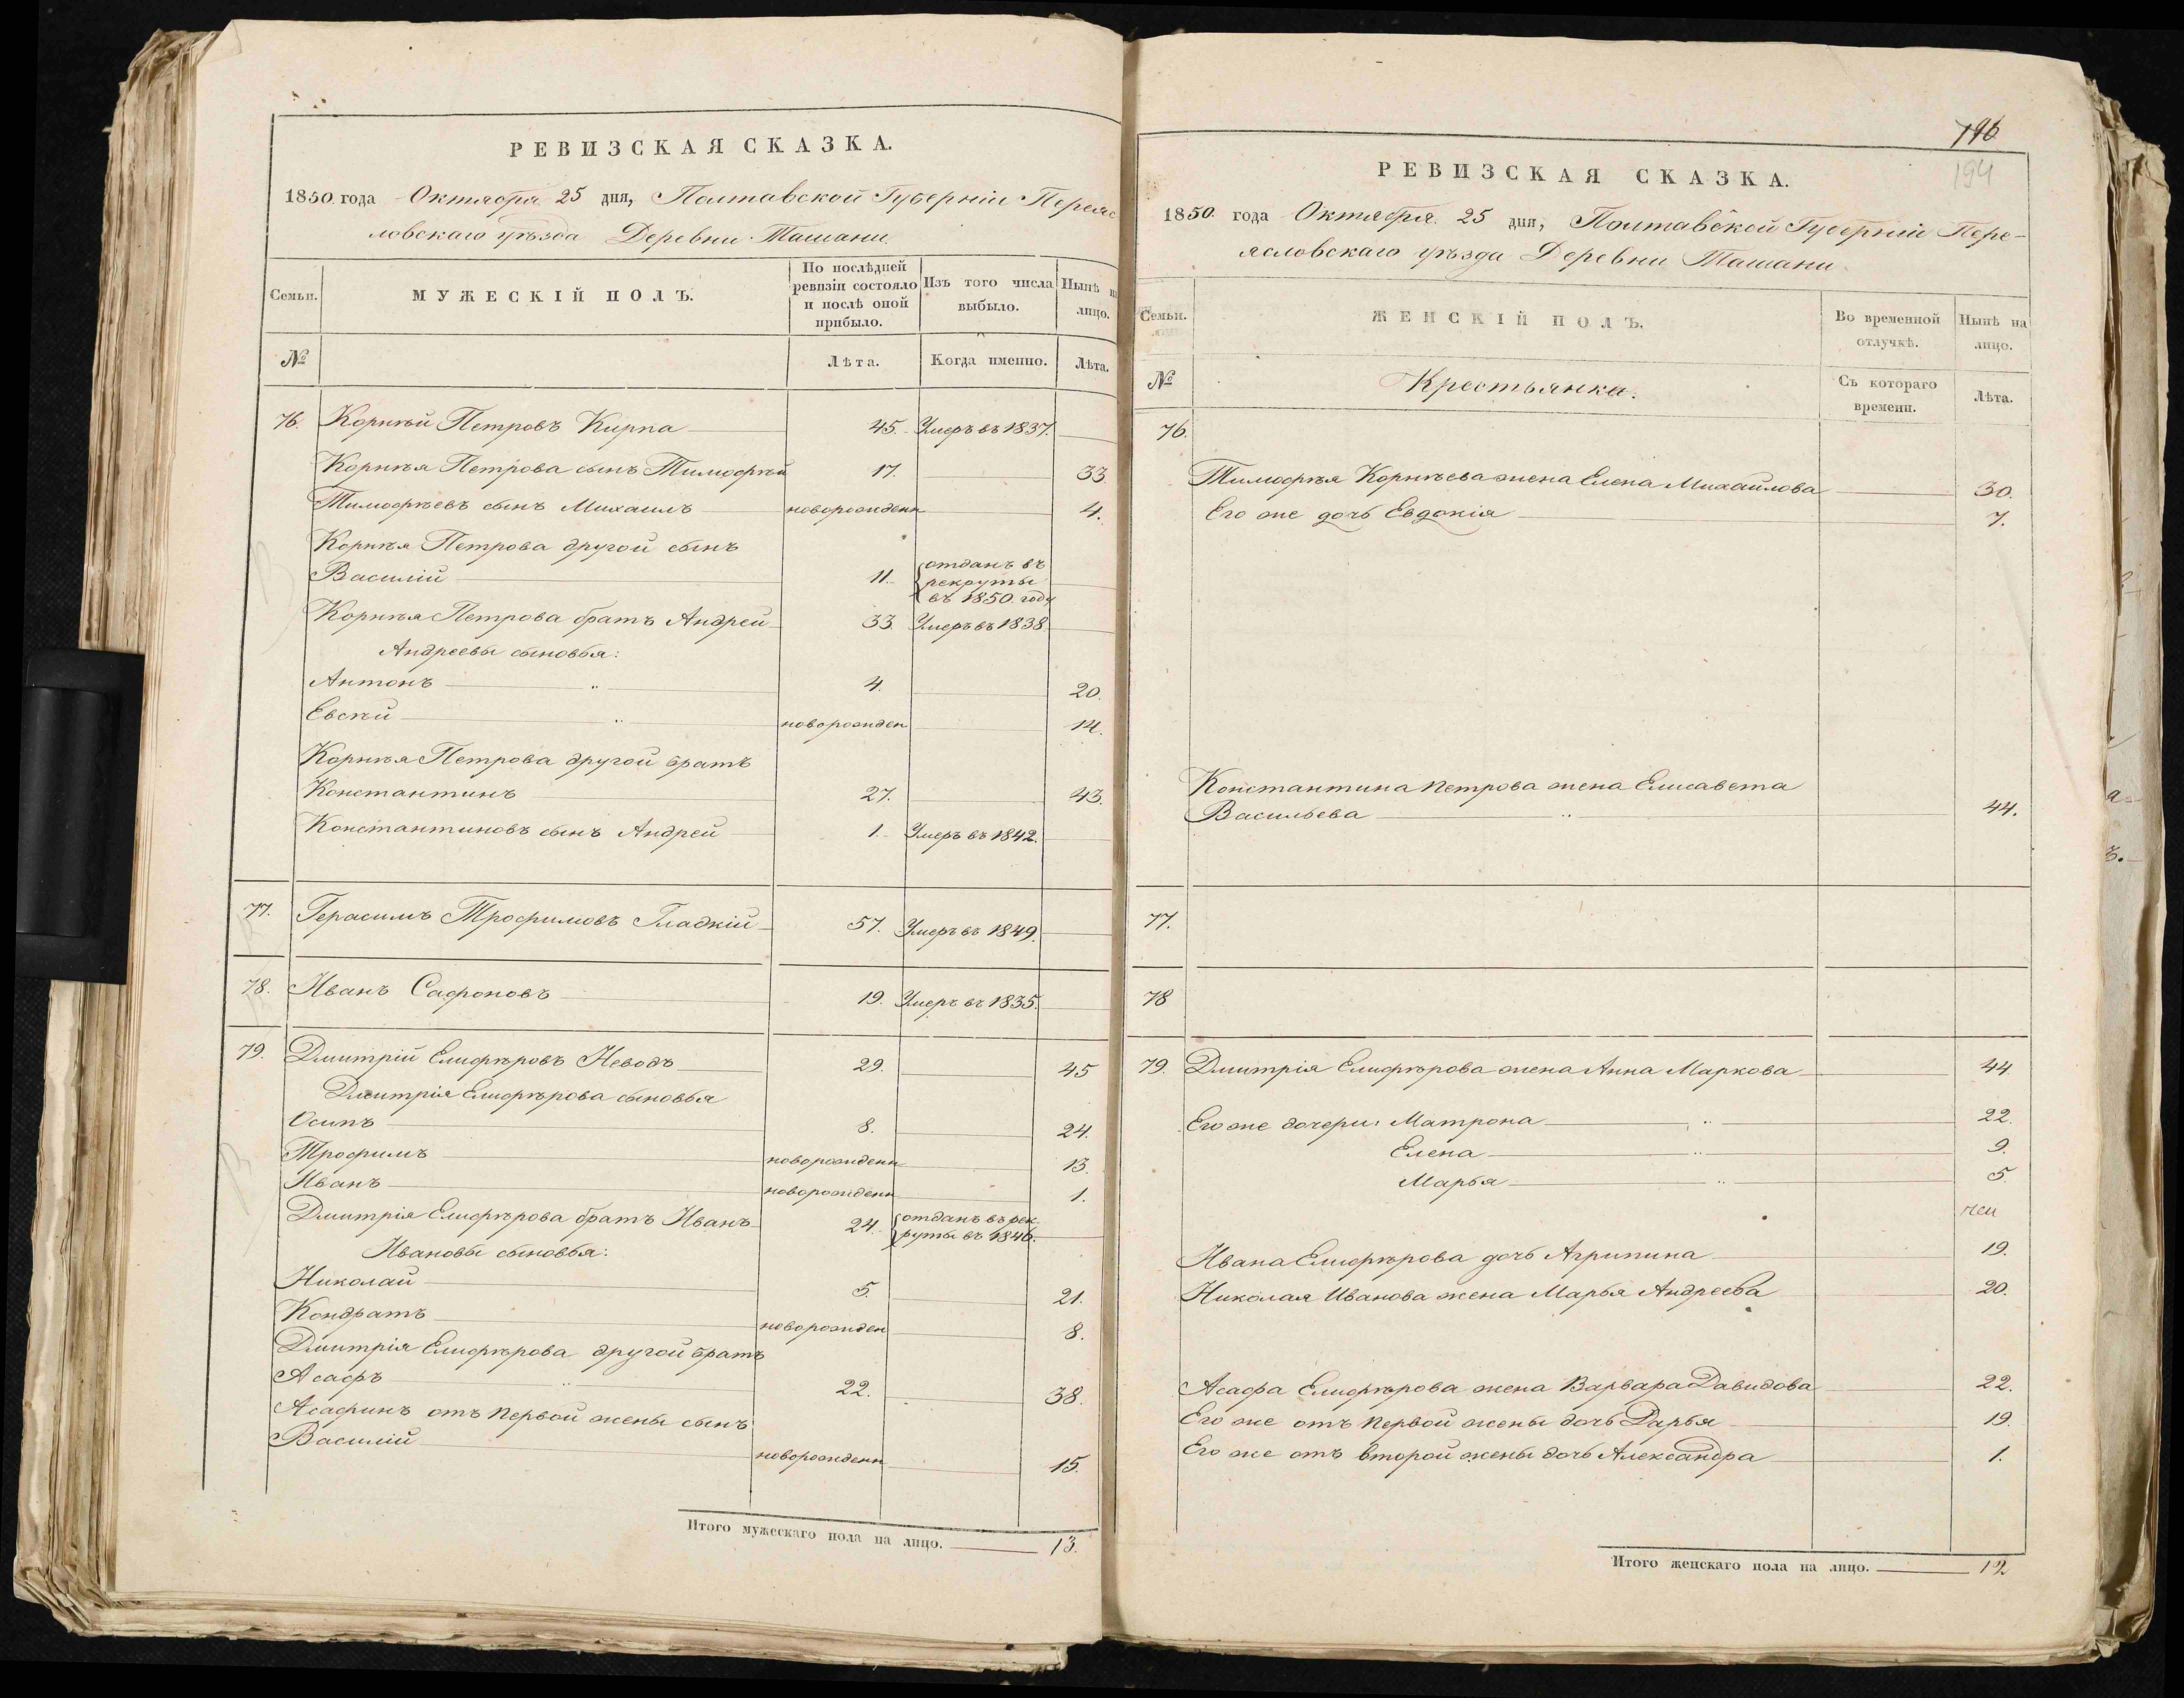 РЕВИЗСКАЯ СКАЗКА.
1850 года Октября 25 дня, Полтавской Губерніи Переяс
ловскаго уѣзда Деревни Ташани.
Семьи.
МУЖЕСКІЙ ПОЛЪ.
По послѣдней ревизіи состояло и послѣ оной прибыло.
Изъ того числа выбыло.
Нынѣ на лицо.
№
Лѣта.
Когда именно.
Лѣта.
76. Корнѣй Петровъ Кирпа 45. Умеръ въ 1837.
Корнѣя Петрова сынъ Тимофѣй 17. 33.
Тимофѣевъ сынъ Михаилъ новорожденн 4.
Корнѣя Петрова другой сынъ
Василій 11. отданъ въ рекруты въ 1850 году
Корнѣя Петрова братъ Андрей 33. Умеръ въ 1838.
Андреевы сыновья:
Антонъ " 4. 20.
Евсѣй " новорожден 14.
Корнѣя Петрова другой братъ
Константинъ 27. 43.
Константиновъ сынъ Андрей 1. Умеръ въ 1842.
77. Герасимъ Трофимовъ Гладкій 57. Умеръ въ 1849.
78. Иванъ Сафоновъ 19. Умеръ въ 1835.
79. Дмитрій Елифѣровъ Неводъ 29. 45
Дмитрія Елифѣрова сыновья
Осипъ 8. 24.
Трофимъ новорожденн 13.
Иванъ новорожденн 1.
Дмитрія Елифѣрова братъ Иванъ 24. отданъ въ рек
руты въ 1846.
Ивановы сыновья:
Николай 5. 21.
Кондратъ новорожден 8.
Дмитрія Елифѣрова другой братъ
Асафъ " 22. 38.
Асафинъ отъ первой жены сынъ
Василій новорожденн 15.
Итого мужескаго пола на лицо. 13.
196
194
РЕВИЗСКАЯ СКАЗКА.
1850 года Октября 25 дня, Полтавской Губерніи Пере-
ясловскаго уѣзда Деревни Ташани.
Семьи.
ЖЕНСКІЙ ПОЛЪ.
Во временной отлучкѣ.
Нынѣ на лицо.
№
Крестьянка.
Съ котораго времени.
Лѣта.
76.
Тимофѣя Корнѣева жена Елена Михайлова 30.
Его же дочь Евдокія 7.
Константина Петрова жена Елисавета
Васильева " 44.
77.
78
79. Дмитрія Елифѣрова жена Анна Маркова 44
Его же дочери: Матрона " 22.
Елена " 9.
Марья " 5.
Ивана Елифѣрова дочь Агрипина 19.
Николая Иванова жена Марья Андреева 20.
Асафа Елифѣрова жена Варвара Давидова 22.
Его же отъ первой жены дочь Дарья 19.
Его же отъ второй жены дочь Александра 1.
Итого женскаго пола на лицо. 12